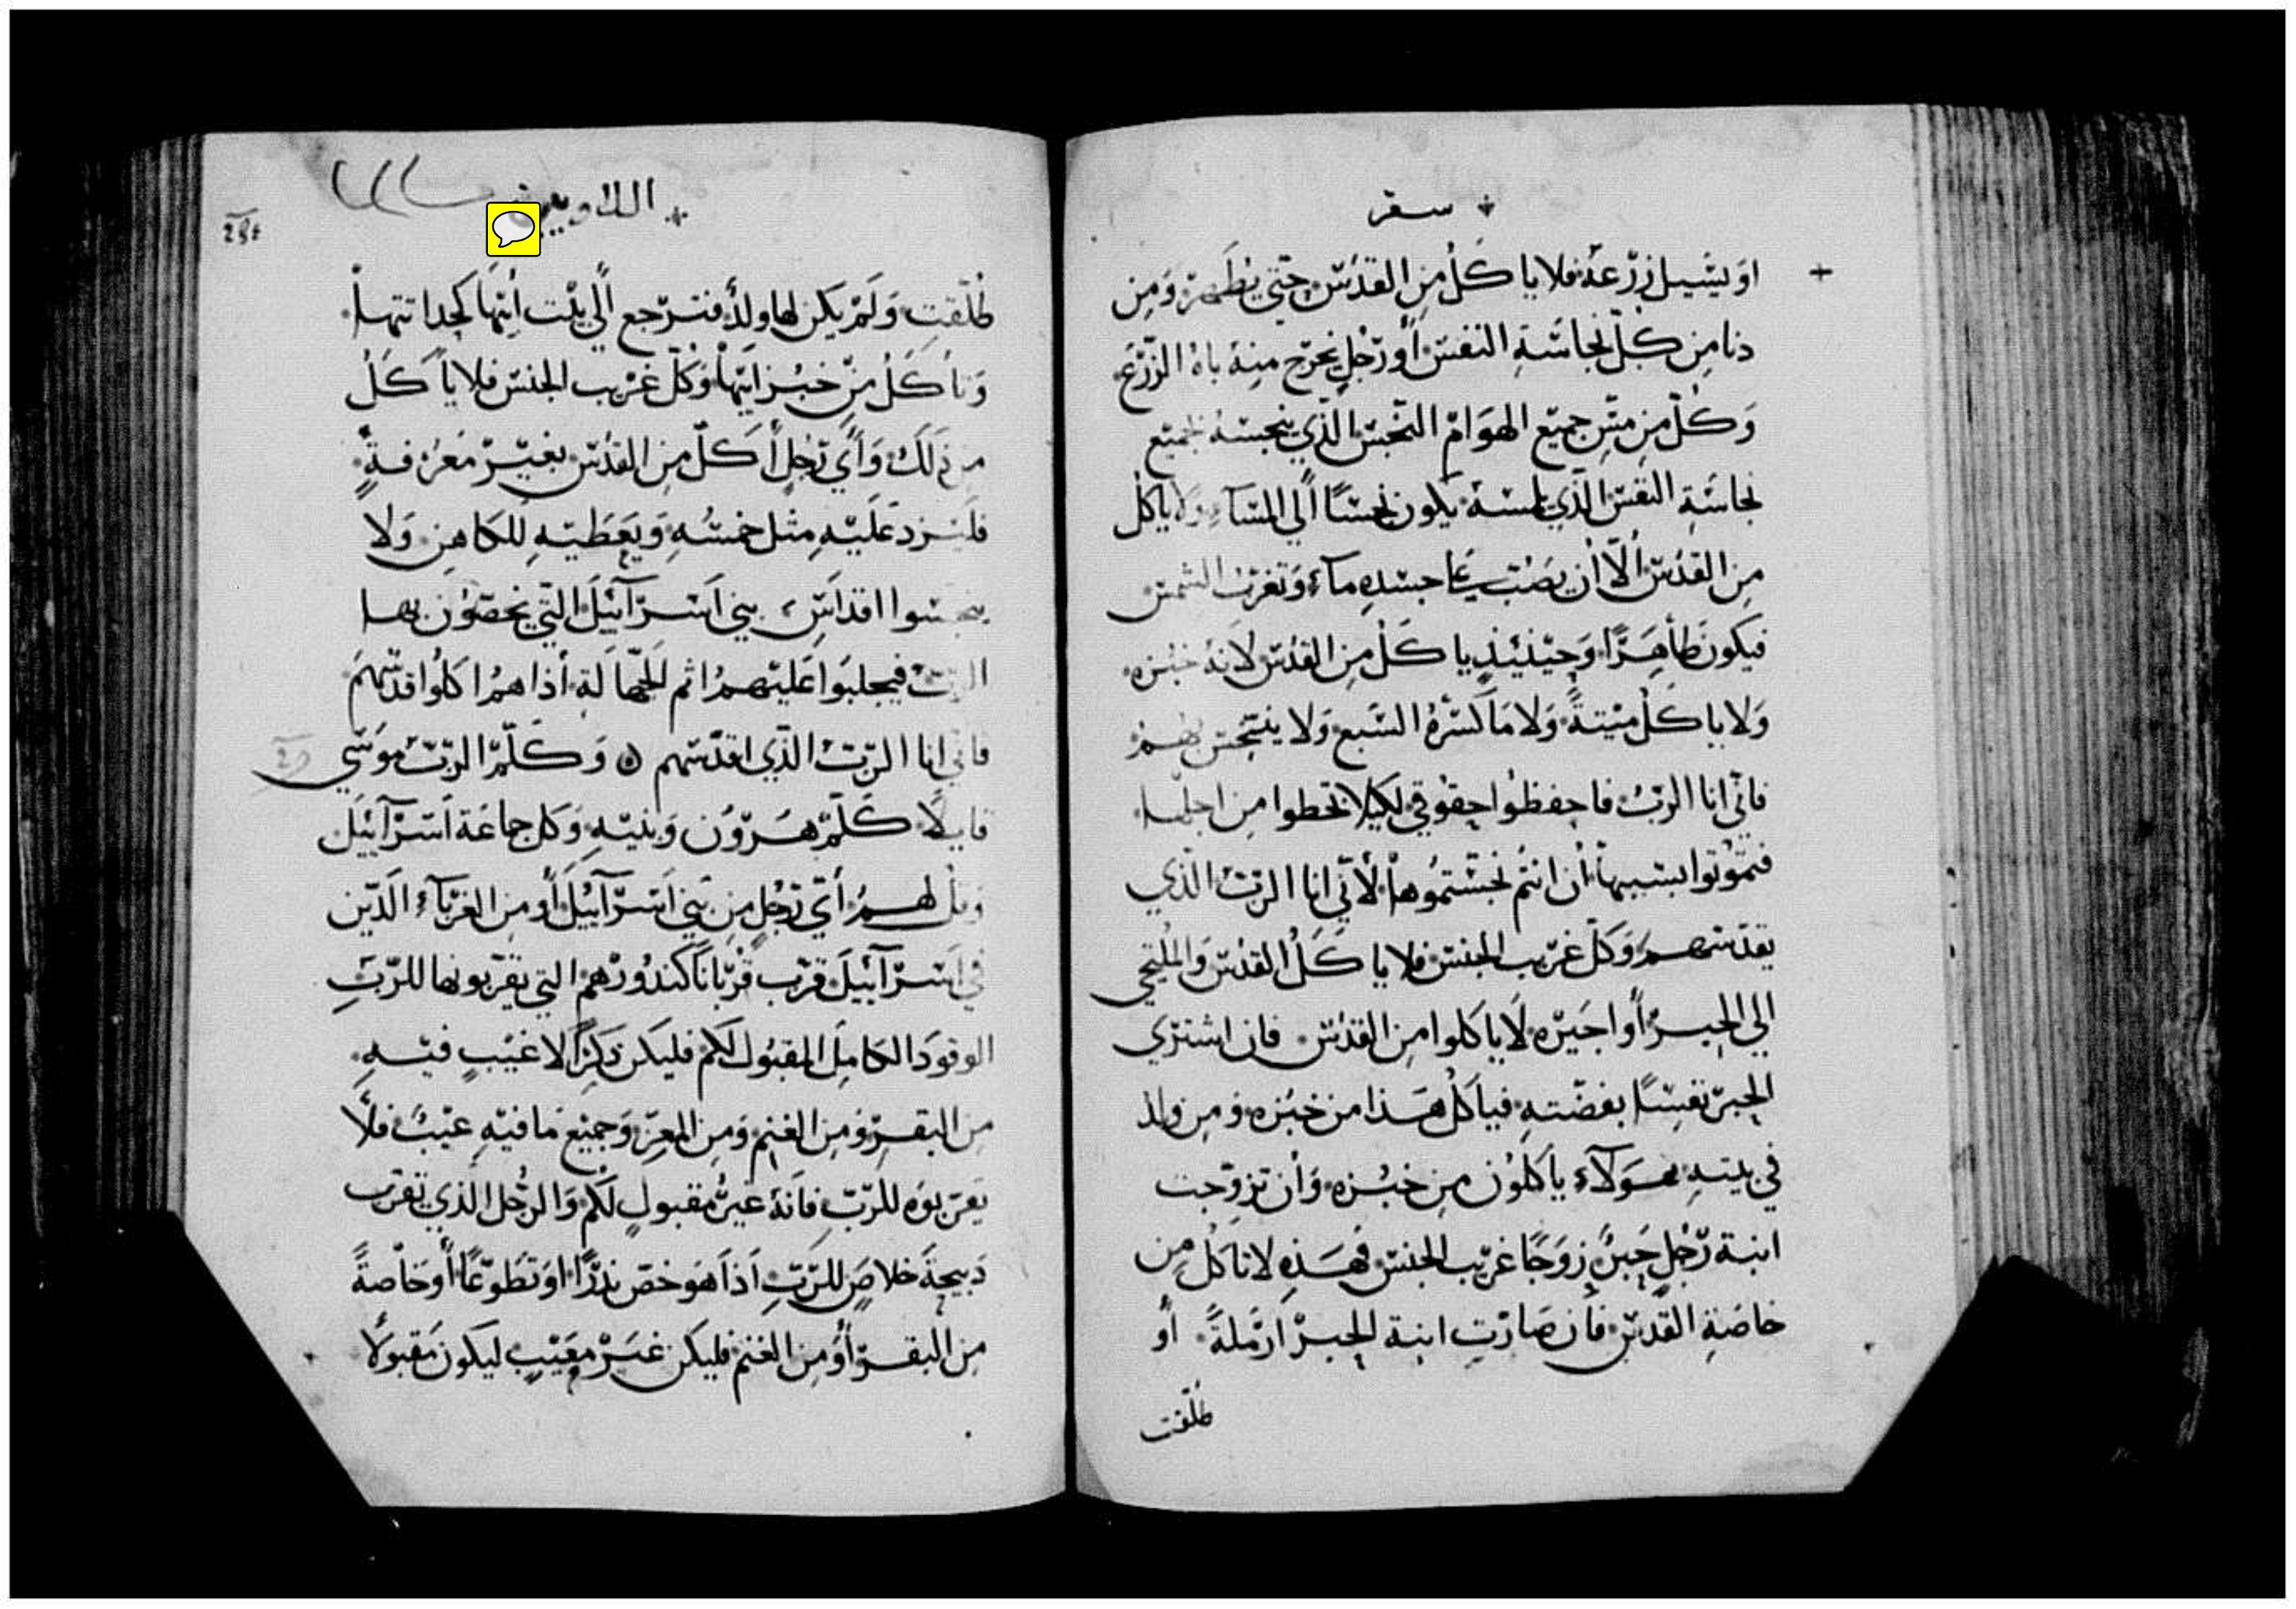 سفر
او يسيل زرعه فلا ياكل من القدس حتي يطهر ومن
دنا من كل نجاسة النفس أو رجل يخرج منه باه الزرع
وكل من مس جميع الهوام النجس الذي ينجسه لجميع
نجاسة النفس الذي لمسه يكون نجسًا ألي المسآء ولا ياكل
من القدس ألا أن يصب علي جسده مآء وتغرب الشمس
فيكون طاهرًا وحينيذ ياكل من القدس لانه خبزه
ولا ياكل ميتةً ولا ما كسره السبع ولا يتنجس بهم
فاني انا الرب فاحفظوا حقوقي لكيلا تخطوا من اجلها
فتموتوا بسببها أن انتم نجستموها لأني انا الرب الذي
يقدسهم وكل غريب الجنس فلا ياكل القدس والملتجي
الي الحبر أو اجيره لا ياكلوا من القدس فان اشتري
الحبر نفسًا بفضته فياكل هذا من خبزه ومن ولد
في بيته هولآء يأكلون من خبزه وأن تزوجت
ابنة رجل حبر زوجًا غريب الجنس فهذه لا تاكل من
خاصة القدس فأن صارت ابنة الحبر ارملةً أو
طلقت
اللاويين
طلقت ولم يكن لها ولد فترجع ألي بيت أبيها كحداتتها
وتأكل من خبز ابيها وكل غريب الجنس فلا يأكل
من ذلك وأي رجل أكل من القدس بغير معرفةٍ
فليزد عليه مثل خمسه ويعطيه للكاهن ولا
ينجسوا اقداس بني اسرآييل التي يخصون بها
الرب فيجلبوا عليهم اثم الجهالة أذا هم اكلوا قدسهم
فاني انا الرب الذي اقدسهم وكلم الرب موسي
قايلًا كلم هرون وبنيه وكل جماعة اسرآييل
وقل لهم أي رجل من بني اسرآييل أو من الغربآء الذين
في اسرآييل قرب قربانًا كندورهم التي يقربونها للرب
الوقود الكامل المقبول لكم فليكن ذكرًا لا عيب فيه
من البقر ومن الغنم ومن المعز وجميع ما فيه عيب فلا
يقربوه للرب فانه غير مقبول لكم والرجل الذي يقرب
دبيحة خلاص للرب أذا هو خص ندرًا او تطوعًا أو خاصةً
من البقر أو من الغنم فليكن غير معيب ليكون مقبولًا